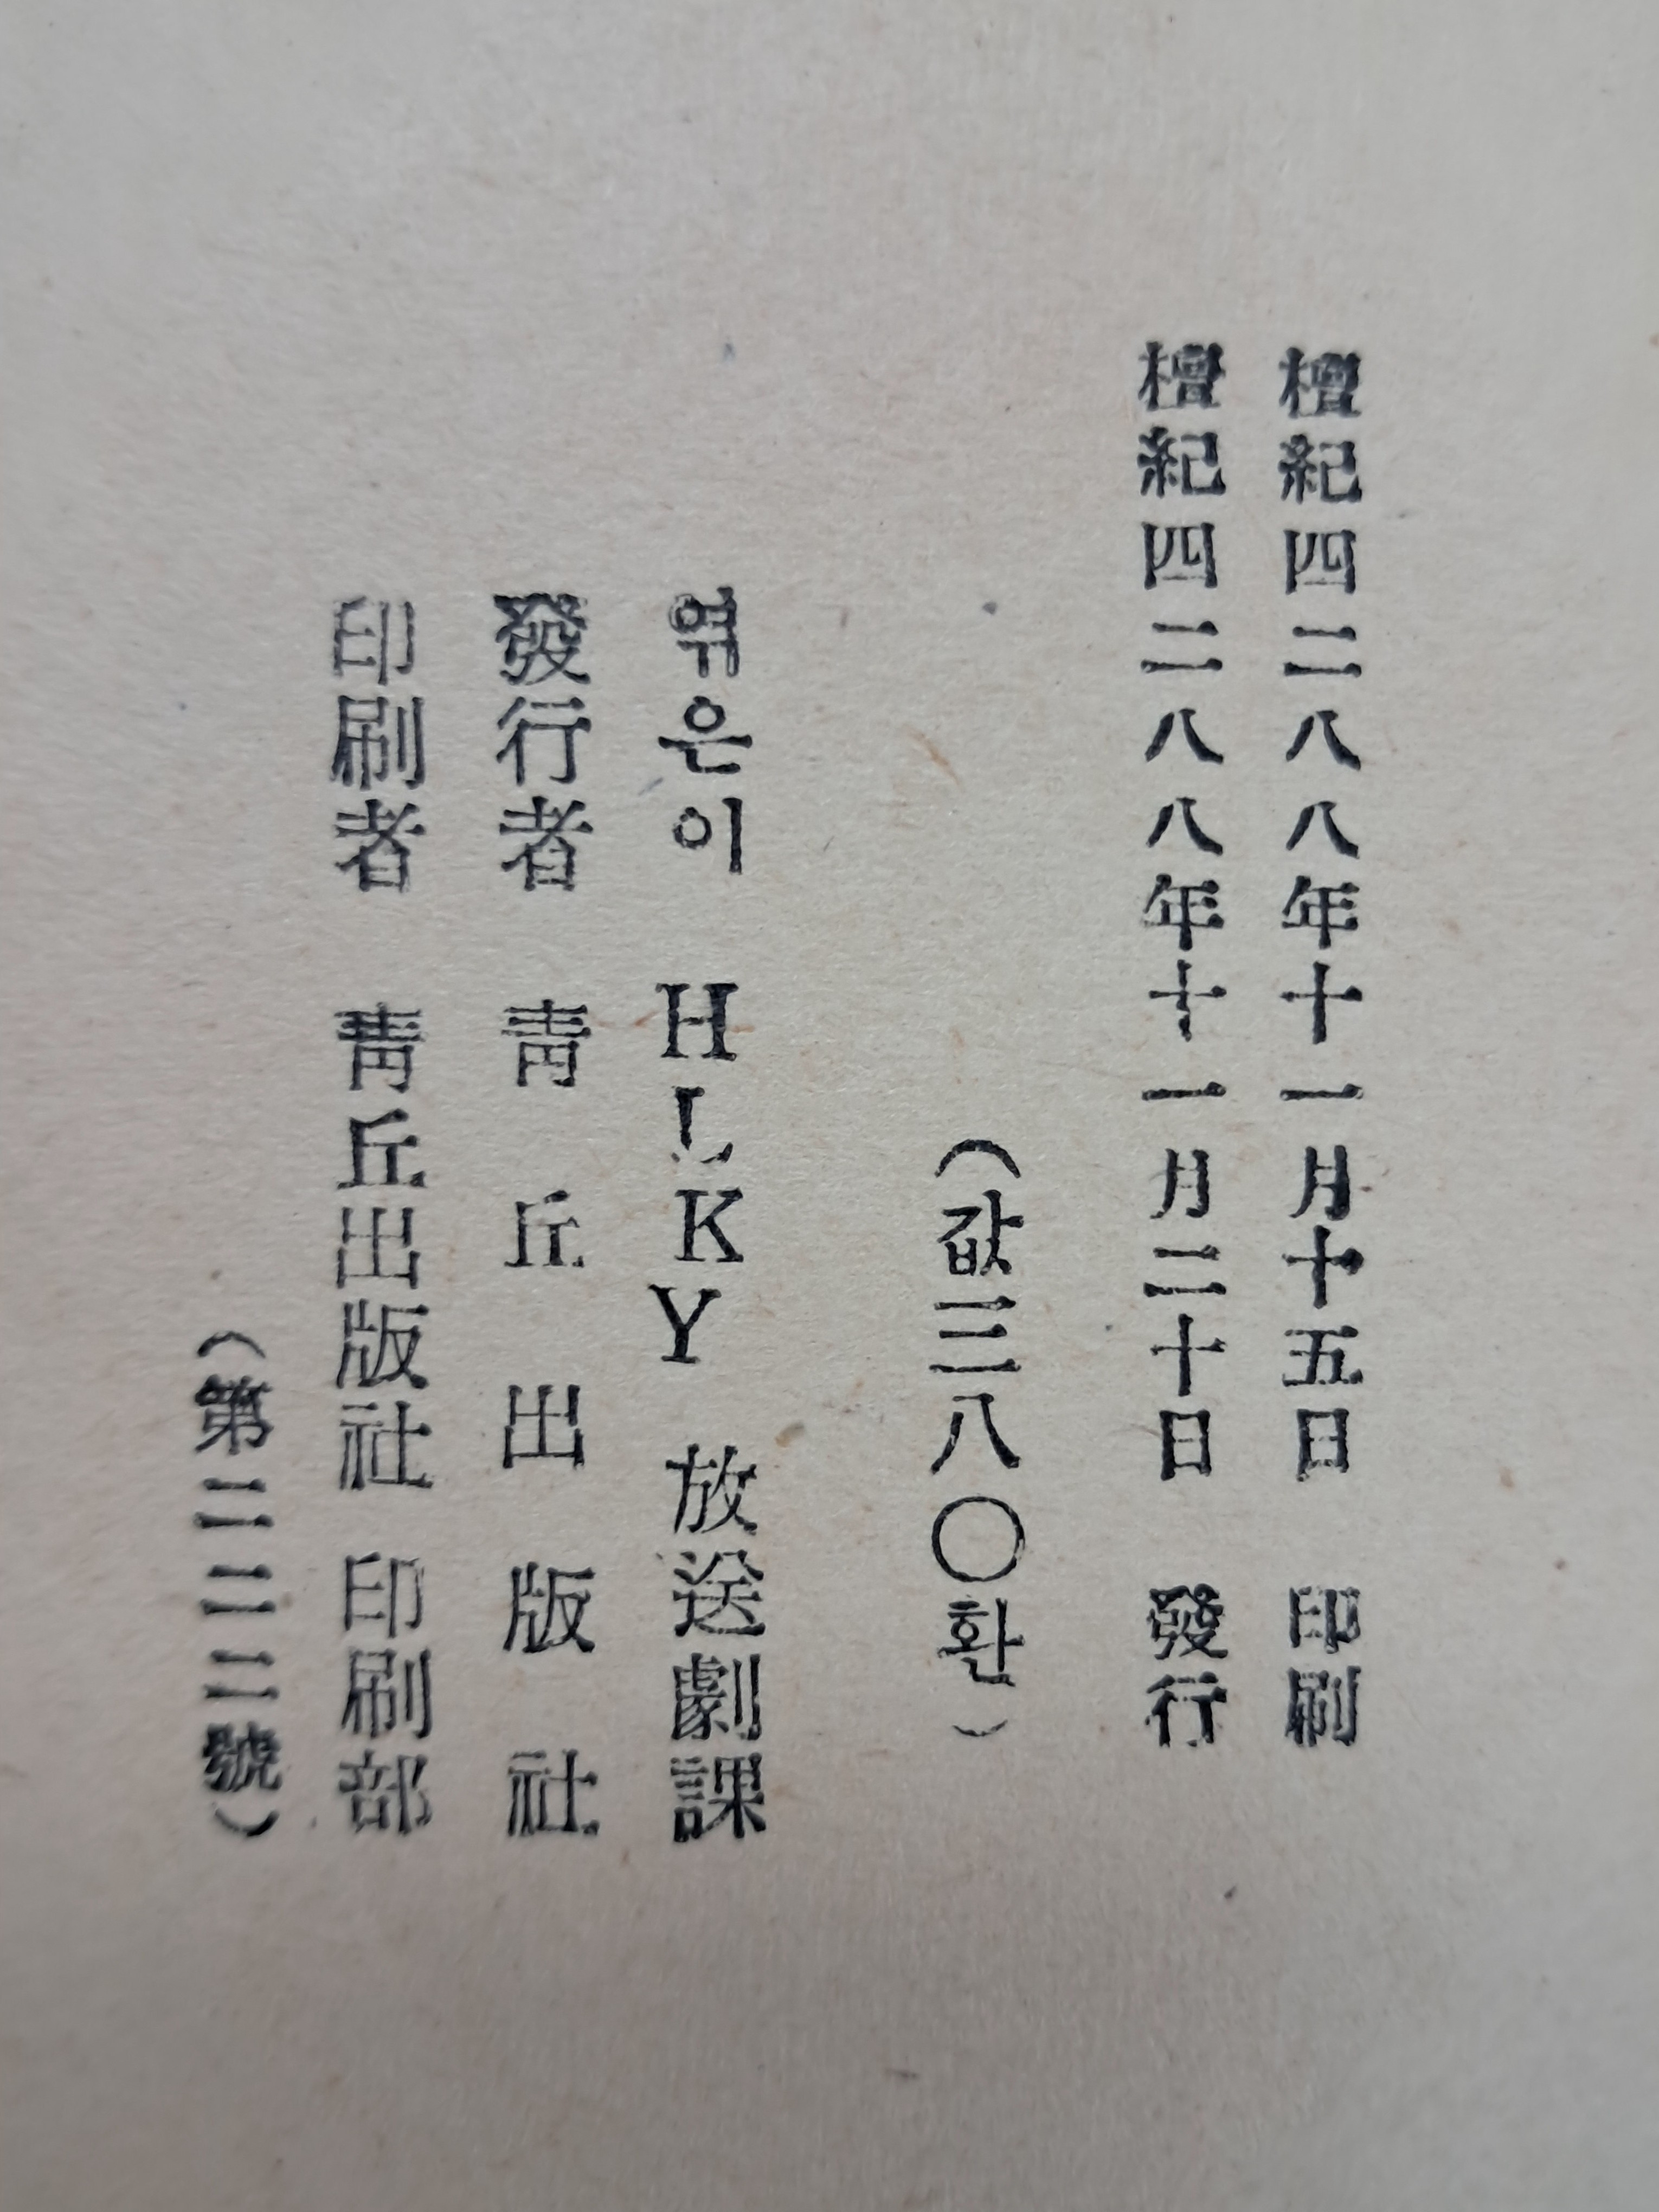 檀紀四二八八年十一月十五日 印刷
檀紀四二八八年十一月二十日 發行
(값三八〇환)
엮은이 HLKY 放送劇課
發行者 靑丘出版社
印刷者 靑丘出版社 印刷部
(第二二二號)